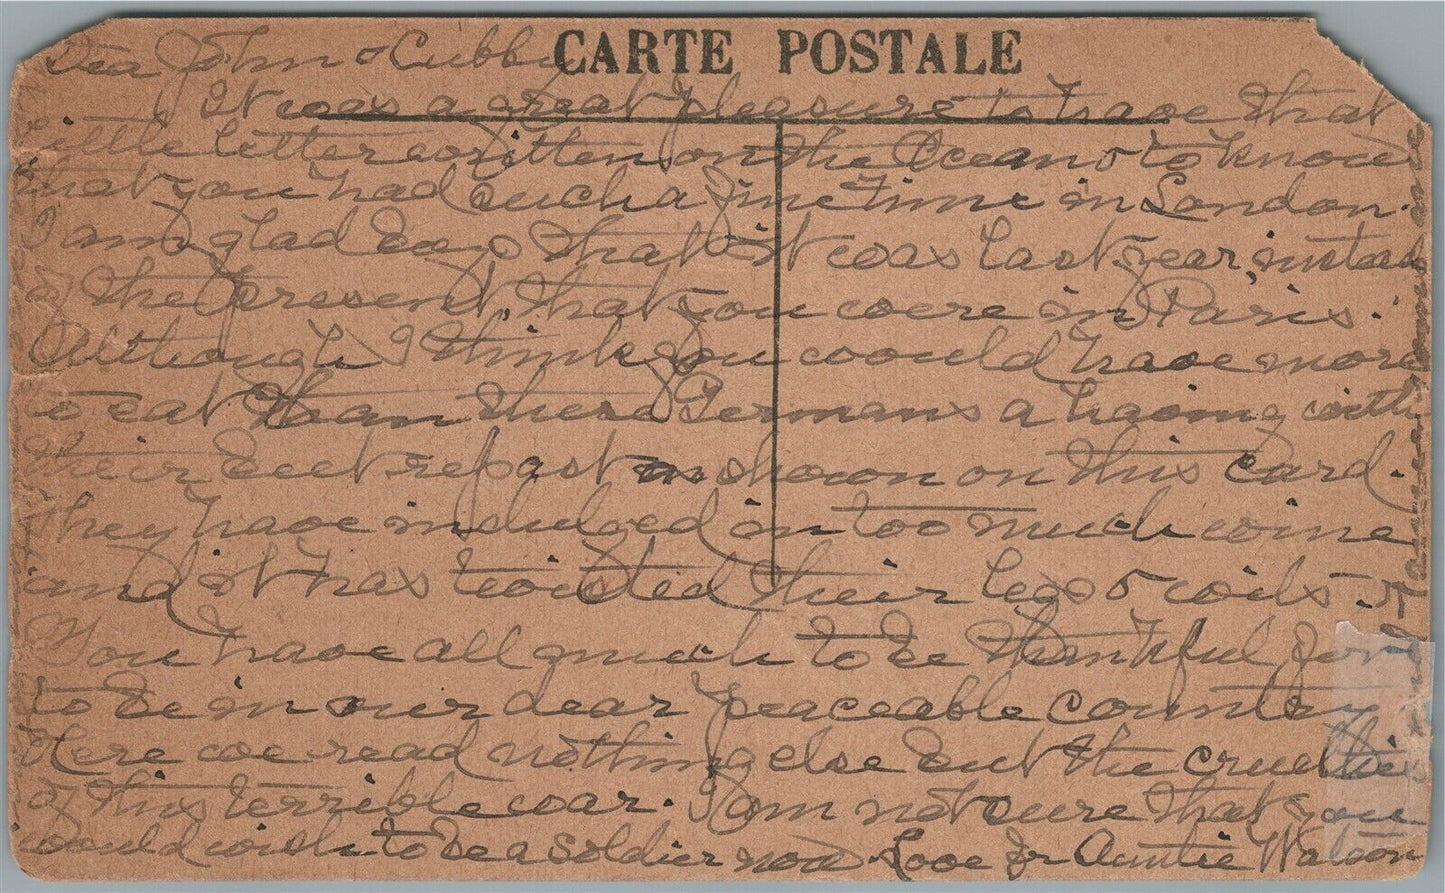 CARTE POSTALE
Dea John & Cubby
It was a great pleasure to have that
little letter written on the Ocean & to know
that you had such a fine time in London.
I am glad boys that it was last year, instead
of the present, that you were in Paris.
Although I think you would have more
to eat than these Germans a having with
their beet repast as shown on this card.
They have indulged in too much wine
and it has twisted their legs &
You have all much to be thankful for
to be in our dear peaceable country
Here we read nothing else but the cruelties
of this terrible war. I am not sure that you
would wish to be a soldier now. Love fr Auntie Watson